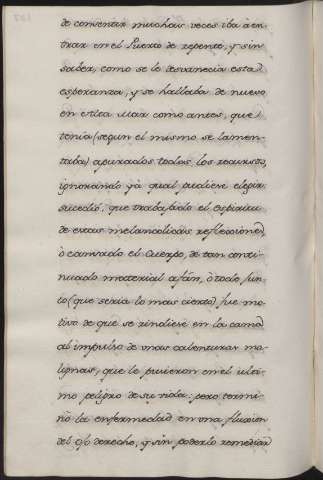 de consentir muchas veces iba à en-
trar en el Puerto de repente, y sin
saber, como se le desvanecia esta
esperanza, y se hallaba de nuevo
en alta Mar como antes, que
tenia (segun el mismo se lamen-
taba) apurados todos los recursos,
ignorando yà qual pudiese elegir.
sucediò, que trabajado el espiritu
de estas melancolicas reflecciones,
ò cansado el Cuerpo, de tan conti-
nuado material afán, ò todo jun-
to (que seria lo mas cierto) fue mo-
tivo de que se rindiese en la cama
al impulso de unas calenturas ma-
lignas, que le pusieron en el ulti-
mo peligro de su vida: pero termi-
nò la enfermedad en una fluxion
del ojo derecho, y sin poderlo remediar